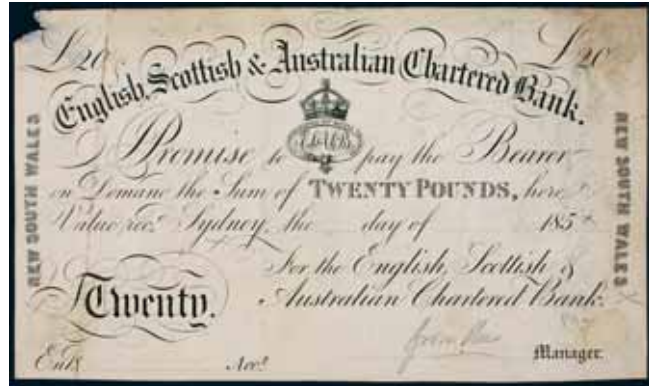 £20 £20
English, Scottish & Australian Chartered Bank.
NEW SOUTH WALES
NEW SOUTH WALES
I Promise to pay the Bearer
on Demand the Sum of TWENTY POUNDS, here
Value rec.d Sydney, the day of 185
For the English, Scottish &
Australian Chartered Bank.
Twenty.
Ent.d Acc.t Manager.